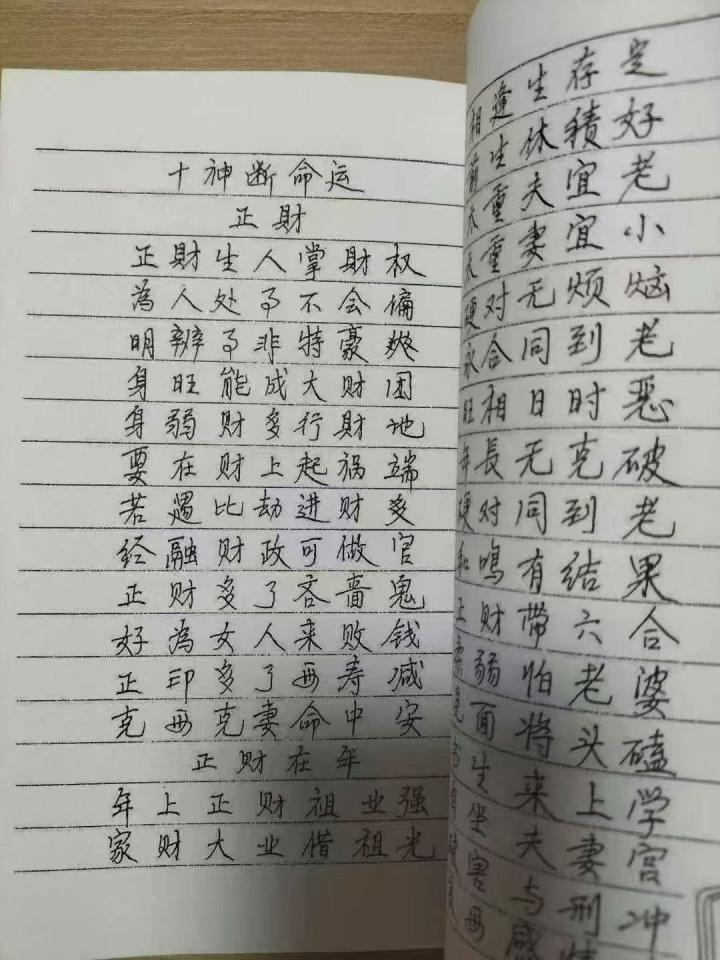 十神断命运
正財
正財生人掌財权
為人处事不会偏
明辨事非特豪爽
身旺能成大财团
身弱财多行財地
要在财上起祸端
若遇比劫进财多
经融财政可做官
正财多了吝啬鬼
好為女人来败钱
正印多了母寿减
克母克妻命中安
正财在年
年上正财祖业强
家财大业借祖光
相逢生存定
生休積好
重夫宜老
重妻宜小
硬对无烦恼
永合同到老
旺相日时恶
年長无克破
硬对同到老
和鳴有結果
正财带六合
柔弱怕老婆
見面将头磕
生来上学
坐夫妻宫
害与刑冲
母感情